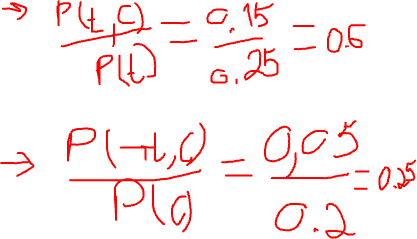 → P(t,c) / P(t) = 0.15 / 0.25 = 0.6
→ P(¬t,c) / P(c) = 0,05 / 0.2 = 0.25